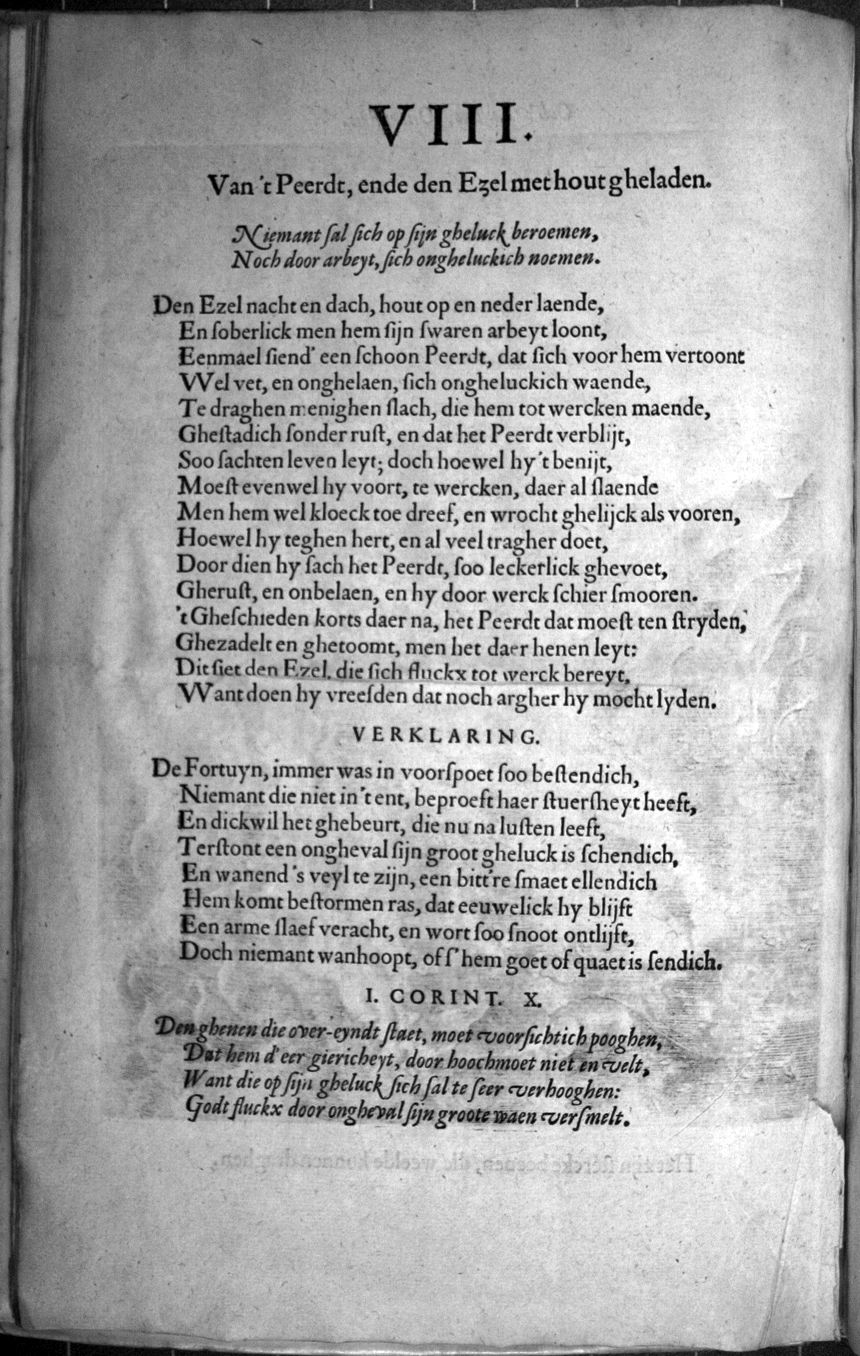 VIII.
Van 't Peerdt, ende den Eʒel met hout gheladen.
Niemant ſal ſich op ſijn gheluck beroemen,
Noch door arbeyt, ſich ongheluckich noemen.
Den Ezel nacht en dach, hout op en neder laende,
En ſoberlick men hem ſijn ſwaren arbeyt loont,
Eenmael ſiend' een ſchoon Peerdt, dat ſich voor hem vertoont
Wel vet, en onghelaen, ſich ongheluckich waende,
Te draghen menighen ſlach, die hem tot wercken maende,
Gheſtadich ſonder ruſt, en dat het Peerdt verblijt,
Soo ſachten leven leyt; doch hoewel hy 't benijt,
Moeſt evenwel hy voort, te wercken, daer al ſlaende
Men hem wel kloeck toe dreef, en wrocht ghelijck als vooren,
Hoewel hy teghen hert, en al veel tragher doet,
Door dien hy ſach het Peerdt, ſoo leckerlick ghevoet,
Gheruſt, en onbelaen, en hy door werck ſchier ſmooren.
't Gheſchieden korts daer na, het Peerdt dat moeſt ten ſtryden,
Ghezadelt en ghetoomt, men het daer henen leyt:
Dit ſiet den Ezel, die ſich fluckx tot werck bereyt,
Want doen hy vreeſden dat noch argher hy mocht lyden.
VERKLARING.
De Fortuyn, immer was in voorſpoet ſoo beſtendich,
Niemant die niet in 't ent, beproeft haer ſtuerſheyt heeft,
En dickwil het ghebeurt, die nu na luſten leeft,
Terſtont een ongheval ſijn groot gheluck is ſchendich,
En wanend 's veyl te zijn, een bitt're ſmaet ellendich
Hem komt beſtormen ras, dat eeuwelick hy blijft
Een arme ſlaef veracht, en wort ſoo ſnoot ontlijft,
Doch niemant wanhoopt, of ſ' hem goet of quaet is ſendich.
I. CORINT. X.
Den ghenen die over-eyndt ſtaet, moet voorſichtich pooghen,
Dat hem d'eer giericheyt, door hoochmoet niet en velt,
Want die op ſijn gheluck ſich ſal te ſeer verhooghen:
Godt fluckx door ongheval ſijn groote waen verſmelt.